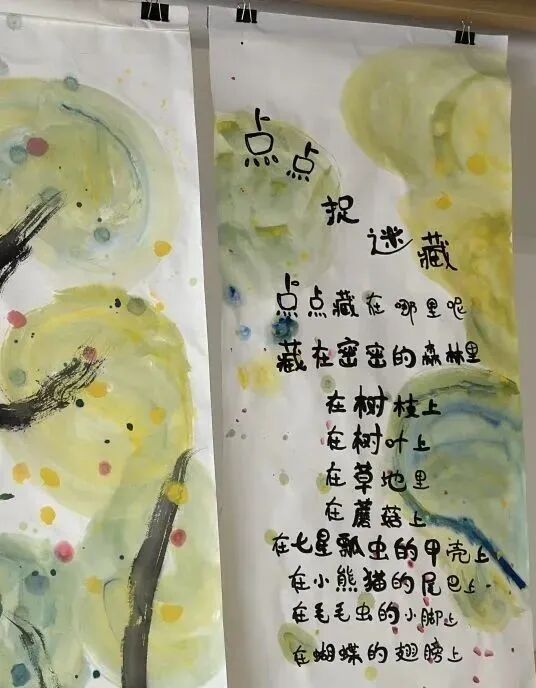 点点
捉迷藏
点点藏在哪里呢
藏在密密的森林里
在树枝上
在树叶上
在草地里
在蘑菇上
在七星瓢虫的甲壳上
在小熊猫的尾巴上
在毛毛虫的小脚上
在蝴蝶的翅膀上